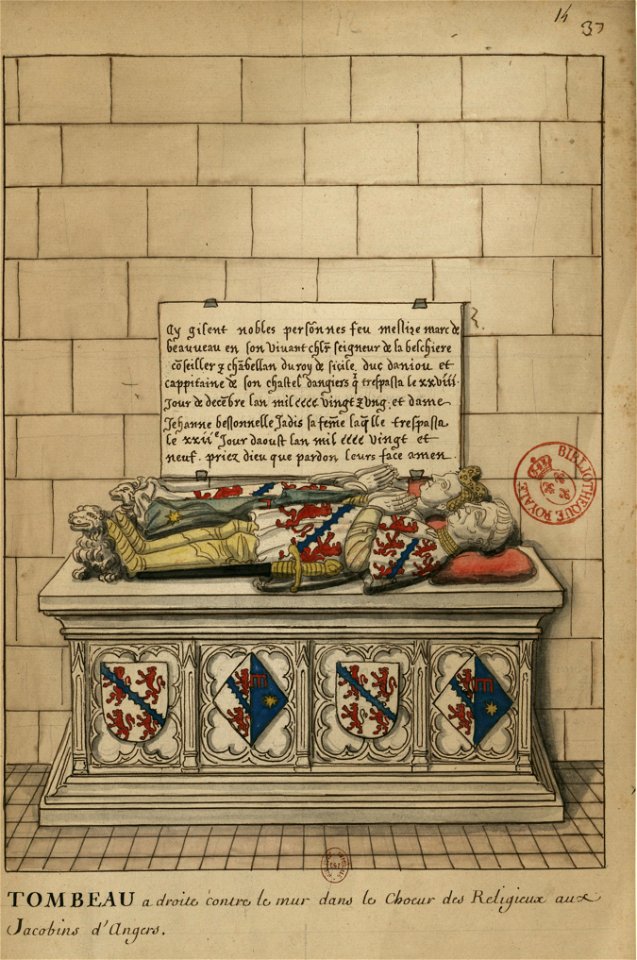 14
37
Cy gisent nobles persõnnes feu messire marc de
beauveau en son vivant chlr̃ seigneur de la beschiere
cõseiller ⁊ chãbellan du roy de sicile duc daniou et
cappitaine de son chastel dangiers q̃ trespassa le xxviii.
Jour de decẽbre lan mil cccc vingt ⁊ ung. et dame
Jehanne bessonnelle Jadis sa fem̃e laq̃lle trespassa
le xxii e Jour daoust lan mil cccc vingt et
neuf. priez dieu que pardon leurs face amen.
BIBLIOTHEQUE ROYALE
TOMBEAU a droite contre le mur dans le Choeur des Religieux aux
Jacobins d'Angers.